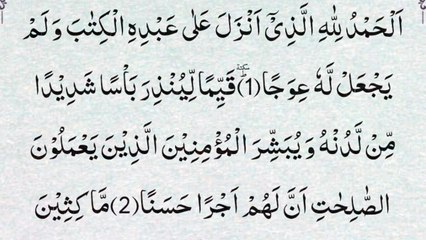 اَلْحَمْدُ لِلّٰهِ الَّذِیْۤ اَنْزَلَ عَلٰى عَبْدِهِ الْكِتٰبَ وَ لَمْ
یَجْعَلْ لَّهٗ عِوَجًاؕٚ(1) قَیِّمًا لِّیُنْذِرَ بَاْسًا شَدِیْدًا
مِّنْ لَّدُنْهُ وَ یُبَشِّرَ الْمُؤْمِنِیْنَ الَّذِیْنَ یَعْمَلُوْنَ
الصّٰلِحٰتِ اَنَّ لَهُمْ اَجْرًا حَسَنًا(2) مَّا كِثِیْنَ